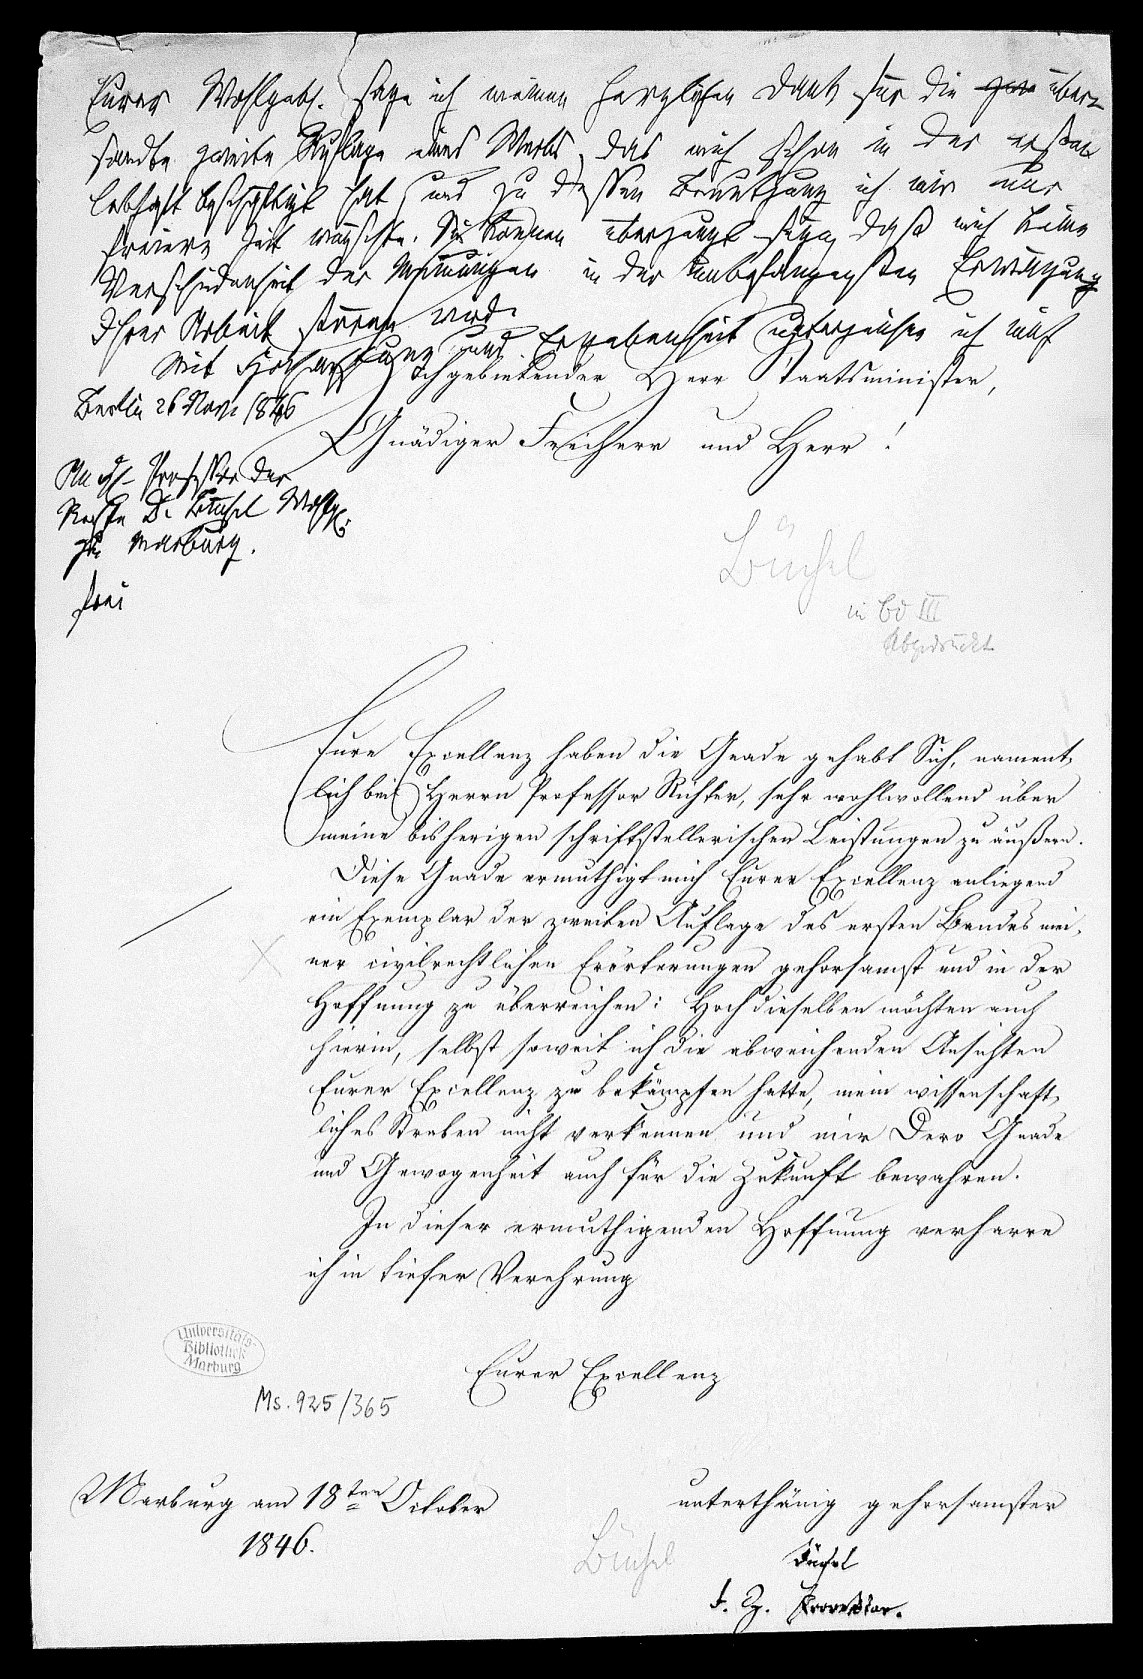 Eurer Wohlgeb. sage ich meinen herzlichen Dank für die über-
sandte zweite Auflage eines Werks, das mich schon in der ersten
lebhaft beschäftigt hat, und zu dessen Benutzung ich mir nur
freiere Zeit wünschte. Sie können überzeugt seyn, daß mich keine
Verschiedenheit der Meinungen in der unbefangensten Erwägung
Ihrer Arbeit stören wird.
Mit Hochachtung und Ergebenheit unterzeichne ich mich
Berlin 26 Nov. 1846
An H. Professor der
Rechte D. Büchel Wohlg.
zu Marburg.
frei
Hochgebietender Herr Staatsminister,
Gnädiger Freiherr und Herr!
Büchel
in Bd III
Abgedruckt
Eure Excellenz haben die Gnade gehabt Sich, nament-
lich bei Herrn Professor Richter, sehr wohlwollend über
meine bisherigen schriftstellerischen Leistungen zu äußern.
Diese Gnade ermuthigt mich Eurer Excellenz anliegend
ein Exemplar der zweiten Auflage des ersten Bandes mei-
ner civilrechtlichen Erörterungen gehorsamst und in der
Hoffnung zu überreichen: Hochdieselben möchten auch
hierin, selbst soweit ich die abweichenden Ansichten
Eurer Excellenz zu bekämpfen hatte, mein wissenschaft-
liches Streben nicht verkennen und mir Dero Gnade
und Gewogenheit auch für die Zukunft bewahren.
In dieser ermuthigenden Hoffnung verharre
ich in tiefer Verehrung
Universitäts-
Bibliothek
Marburg
Eurer Excellenz
Ms. 925/365
Marburg am 18ten October
1846.
unterthänig gehorsamster
Büchel
Büchel
Professor.